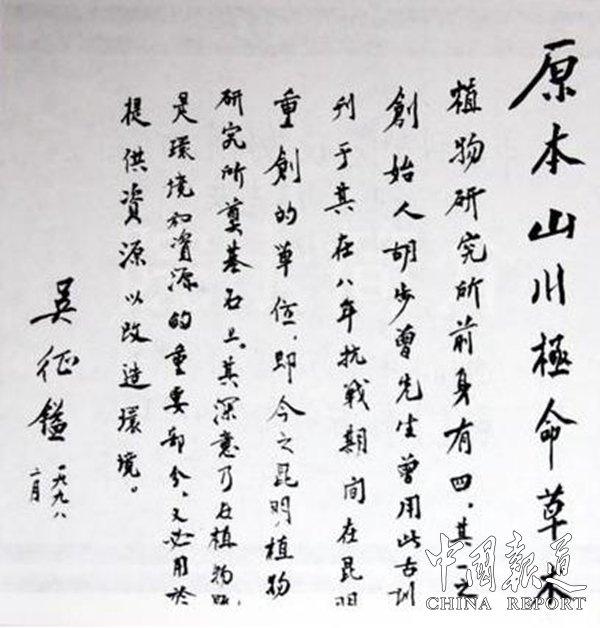 原本山川極命草木
植物研究所前身有四,其一之
創始人胡步曾先生曾用此古训
刊于其在八年抗戰期间在昆明
重創的单位,即今之昆明植物
研究所奠基石上。其深意乃在植物
是環境和資源的重要部分,又必用於
提供資源以改造環境。
吴征鎰
一九九八
六月
中国報道
CHINA REPORT